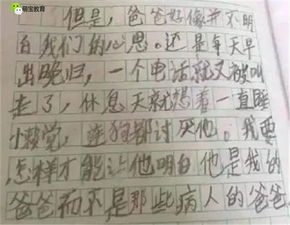 萌宝教育
但是，爸爸好像并不明
白我们的心思。还是每天早
出晚归，一个电话就又被叫
走了，休息天就想着一直睡
小懒觉，连狗都讨厌他。我要
怎样才能让他明白他是我的
爸爸而不是那些病人的爸爸。